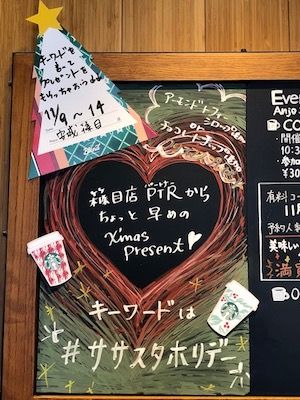 キーワードを
言って
プレゼントを
もらっちゃおう
11/9〜14
安城篠目
アーモンドトフィー
シロップ
or
チョコレートチップ
篠目店 PTRから
ちょっと早めの
X'mas
present
キーワードは
#ササスタホリデー
Eve
Anjo S
CO
・開催
10:3
・参加
¥30
有料コー
11月
予約人気
美味しい
満